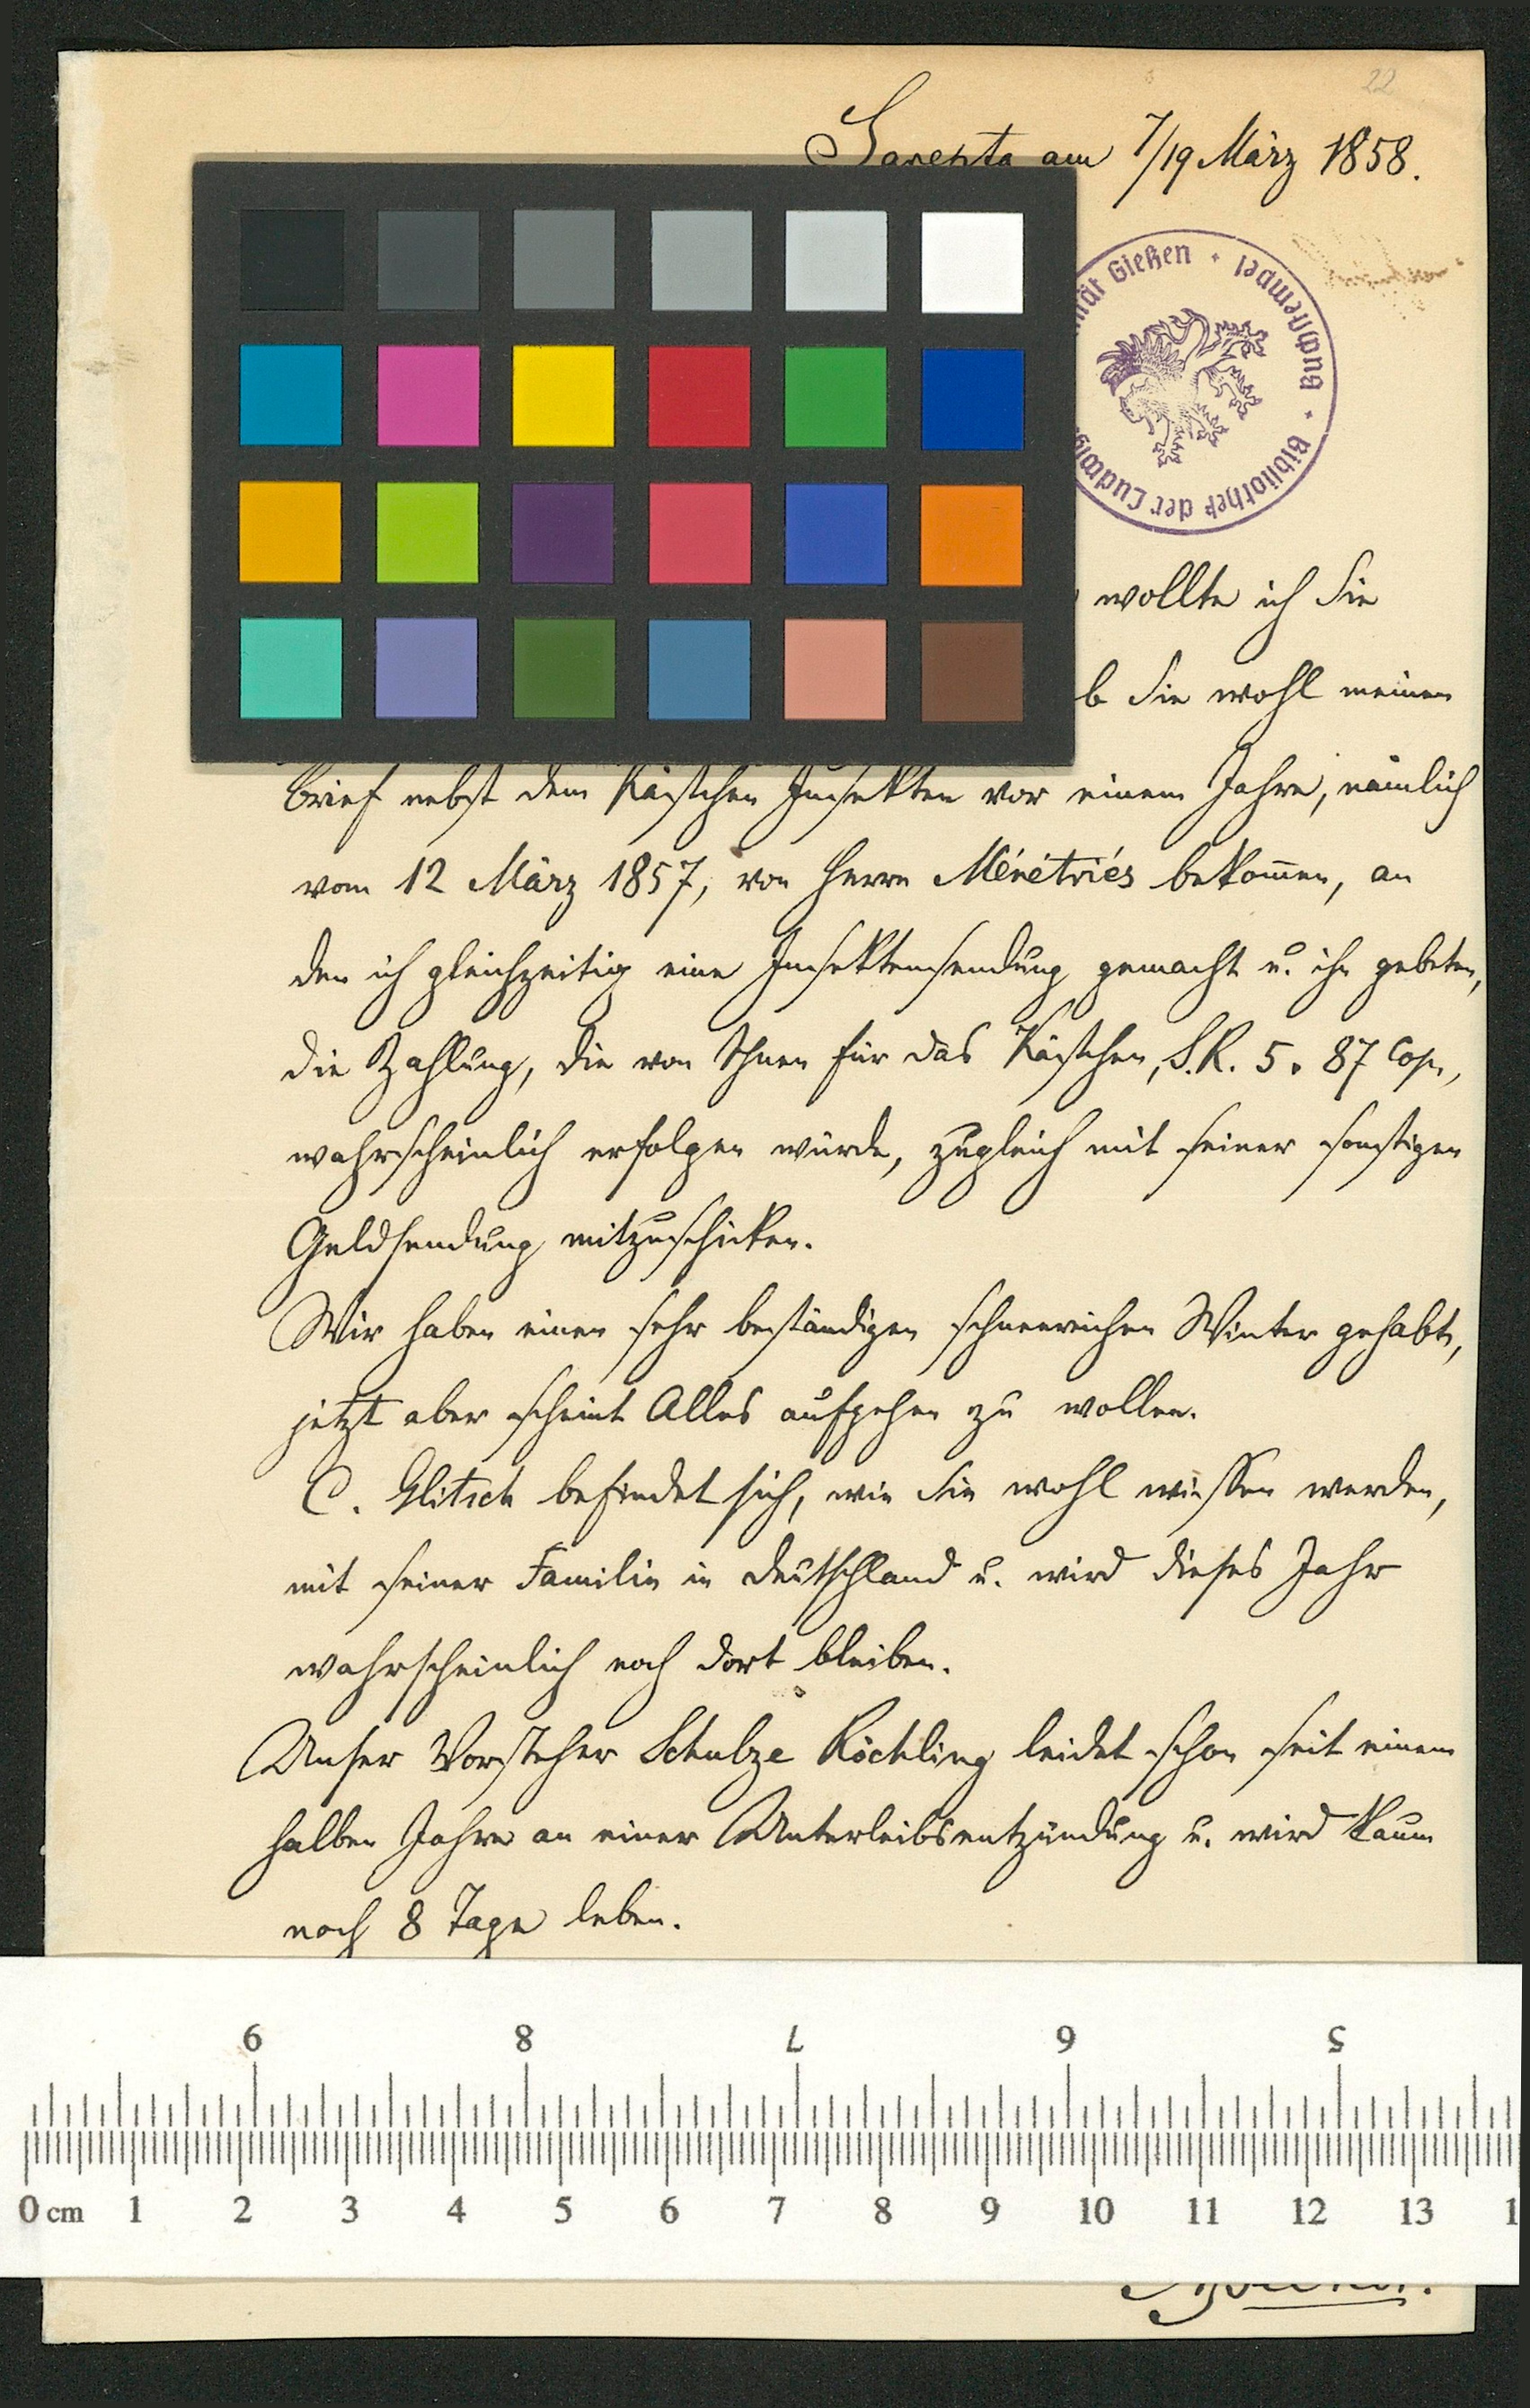 22
Sarepta am 7/19 März 1858.
Bibliothek der Ludwigs
ät Gießen
Buchstempel
wollte ich Sie
b Sie wohl meinen
Brief nebst dem Kästchen Insekten vor einem Jahre, nämlich
vom 12 März 1857, von Herrn Ménétriés bekom̅en, an
den ich gleichzeitig eine Insektensendung gemacht u. ihn gebeten,
die Zahlung, die von Ihnen für das Kästchen, S.R. 5. 87 Cop.,
wahrscheinlich erfolgen würde, zugleich mit seiner sonstigen
Geldsendung mitzuschicken.
Wir haben einen sehr beständigen schneereichen Winter gehabt,
jetzt aber scheint Alles aufgehen zu wollen.
C. Glitsch befindet sich, wie Sie wohl wissen werden,
mit seiner Familie in Deutschland u. wird dieses Jahr
wahrscheinlich noch dort bleiben.
Unser Vorsteher Schulze Röchling leidet schon seit einem
halben Jahre an einer Unterleibsentzündung u. wird kaum
noch 8 Tage leben.
9 8 7 6 5
0 cm 1 2 3 4 5 6 7 8 9 10 11 12 13 1